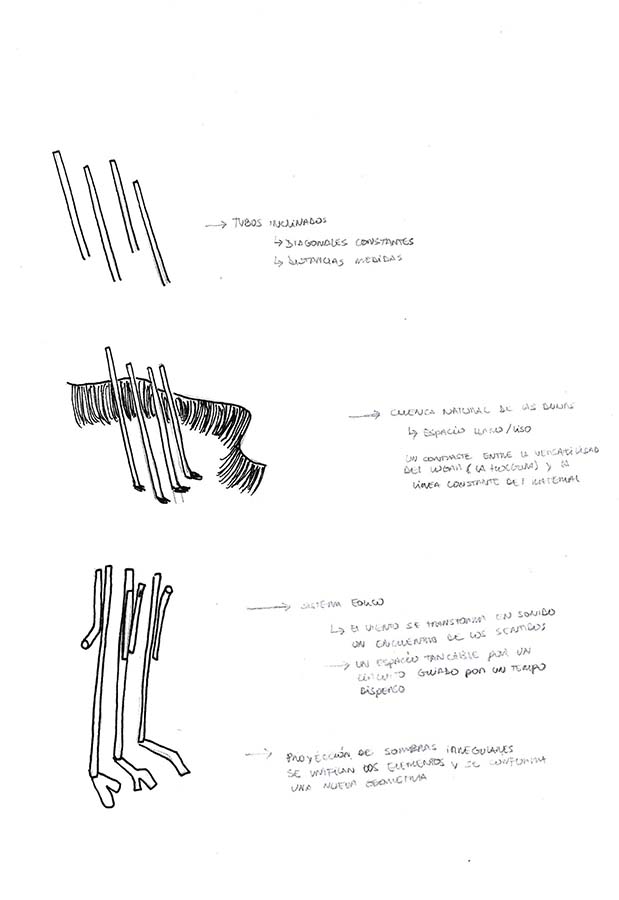 → TUBOS INCLINADOS
↳ DIAGONALES CONSTANTES
↳ DISTANCIAS MEDIDAS
→ CUENCA NATURAL DE LAS DUNAS
↳ ESPACIO LLANO/LISO
UN CONTRASTE ENTRE LA VERSATILIDAD
DEL LUGAR (LA TEXTURA) Y LA
LÍNEA CONSTANTE DEL MATERIAL
→ SISTEMA EOLICO
↳ EL VIENTO SE TRANSFORMA EN SONIDO
UN ENCUENTRO DE LOS SENTIDOS
→ UN ESPACIO POR UN
CIRCUITO GUIADO POR UN TEMPO
DISPERSO
→ PROYECCIÓN DE SOMBRAS IRREGULARES
SE UNIFICAN LOS ELEMENTOS Y SE CONFORMA
UNA NUEVA GEOMETRIA